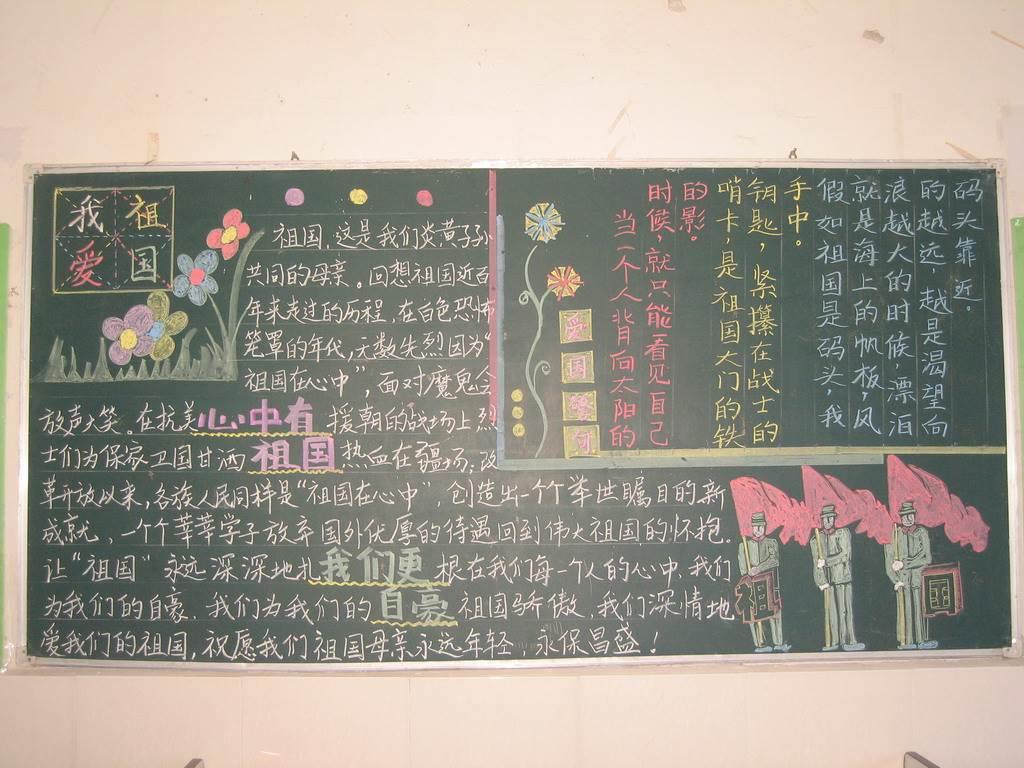 我祖
爱国
祖国，这是我们炎黄子孙
共同的母亲。回想祖国近百
年来走过的历程，在白色恐怖
笼罩的年代，无数先烈因为“
祖国在心中”，面对魔鬼会
放声大笑。在抗美 援朝的战场上烈
心中有
士们为保家卫国甘洒 热血在疆场，改
祖国
革开放以来，各族人民同样是“祖国在心中”，创造出一个个举世瞩目的新
成就，一个个莘莘学子放弃国外优厚的待遇回到伟大祖国的怀抱。
让“祖国”永远深深地扎 根在我们每一个人的心中，我们
我们更
为我们的自豪，我们为我们的 祖国骄傲，我们深情地
自豪
爱我们的祖国，祝愿我们祖国母亲永远年轻，永保昌盛！
爱
国
诗
句
假如祖国是码头，我
就是海上的帆板，风
浪越大的时候，漂泊
的越远，越是渴望向
码头靠近。
哨卡，是祖国大门的铁
钥匙，紧攥在战士的
手中。
当一个人背向太阳的
时候，就只能看见自己
的影。
祖
国